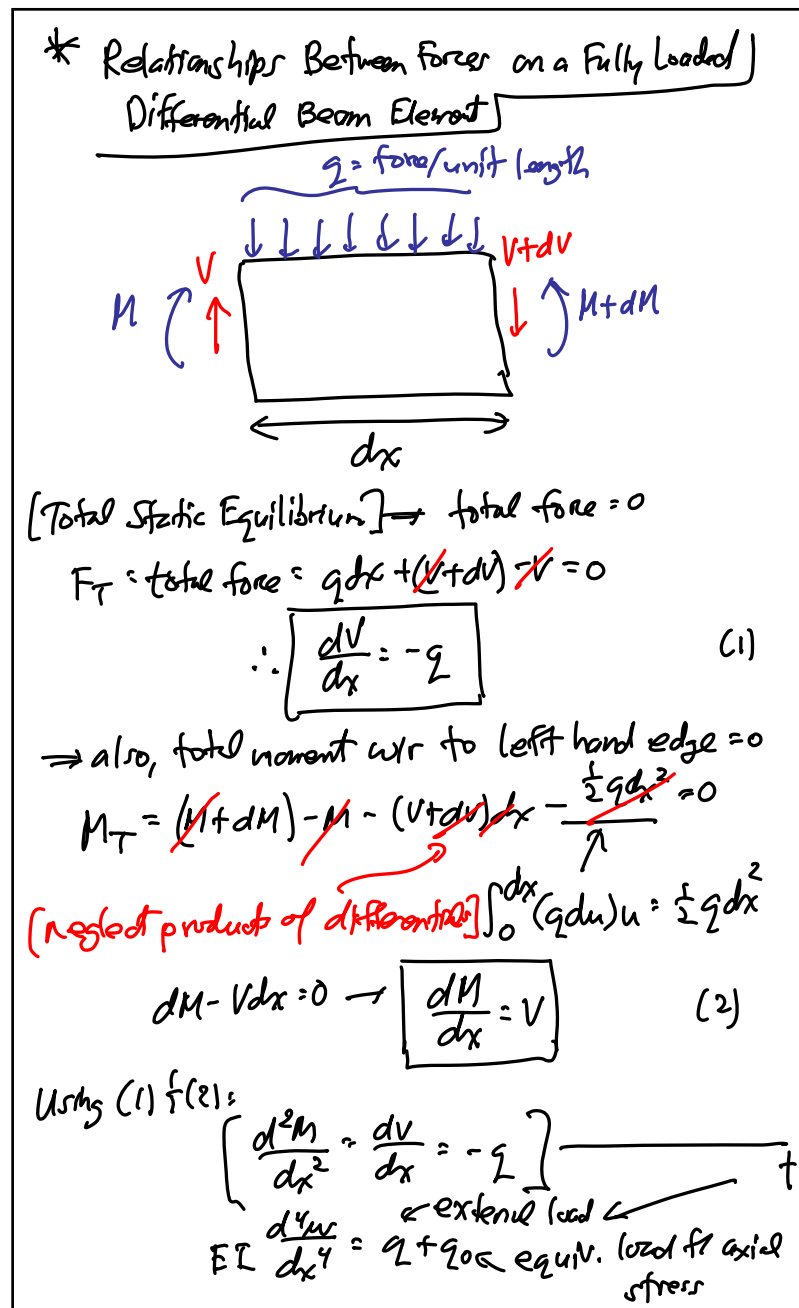 * Relationships Between Forces on a Fully Loaded
Differential Beam Element
q = force/unit length
V
V+dV
M
M+dM
dx
[Total Static Equilibrium] → total force = 0
F_T = total force = qdx + (V+dV) - V = 0
∴ dV/dx = -q (1)
⇒ also, total moment w/r to left hand edge = 0
M_T = (M+dM) - M - (V+dV)dx - ½qdx² = 0
[neglect products of differentials] ∫₀^dx (qdu)u = ½qdx²
dM - Vdx = 0 → dM/dx = V (2)
Using (1) & (2):
[d²M/dx² = dV/dx = -q]
external load
EI d⁴w/dx⁴ = q + q₀ equiv. load f/ axial
stress